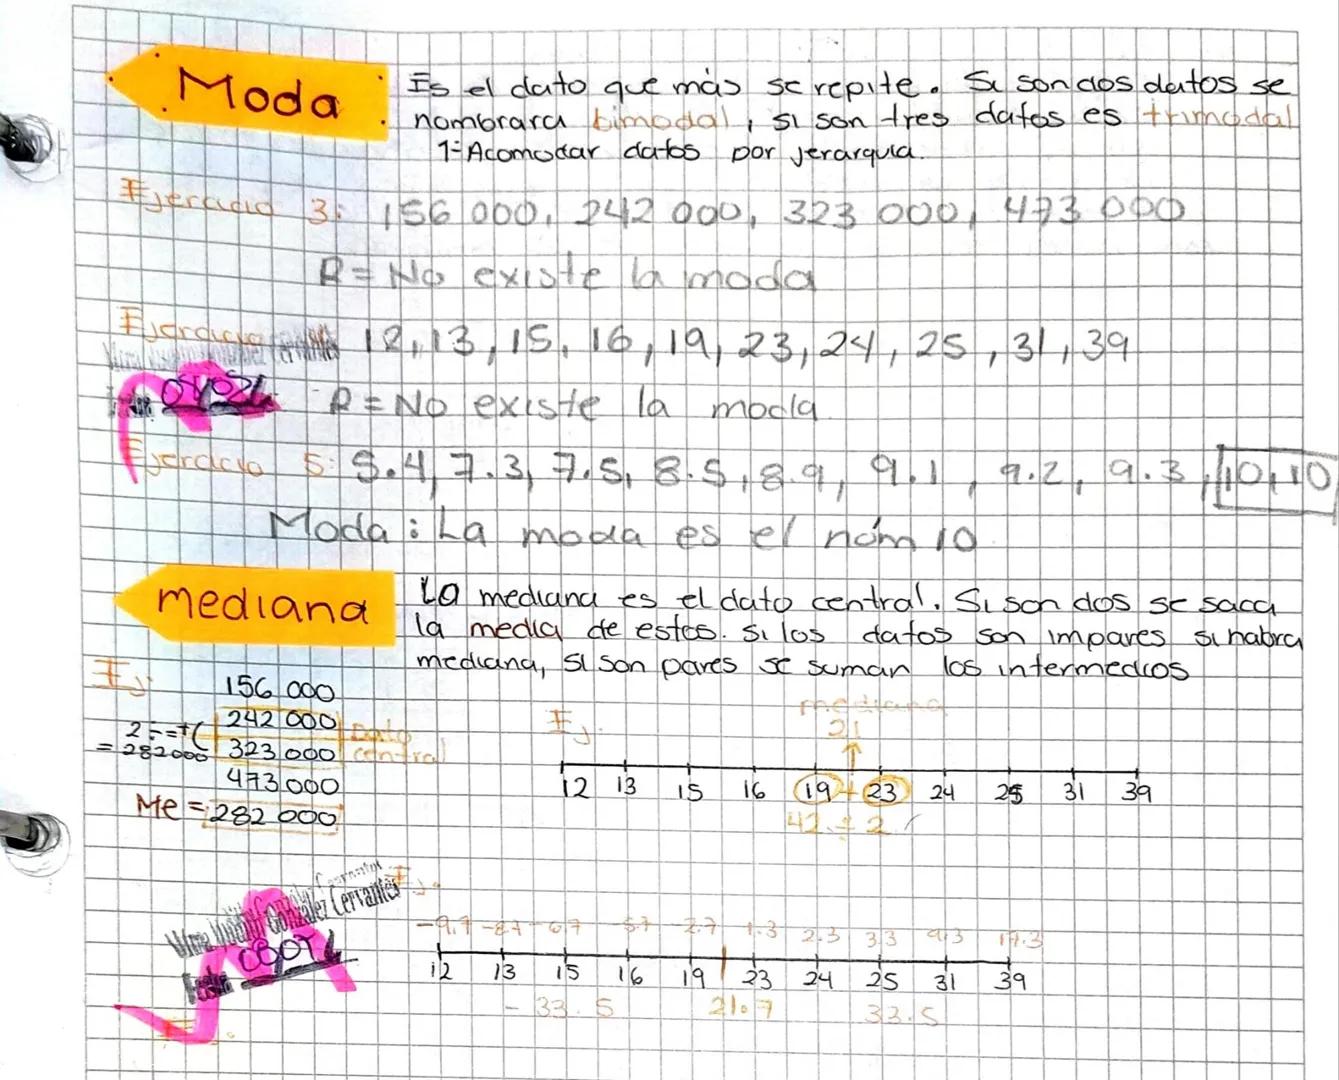 Moda
Es el dato que más se repite. Si son dos datos se
nombrara bimodal, si son tres datos es trimodal
1-Acomodar datos por jerarquia.
Ejercicio 3: 156 000, 242 000, 323 000, 473 000
R= No existe la moda
Ejercicio 12, 13, 15, 16, 19, 23, 24, 25, 31, 39
R= No existe la moda
Ejercicio 5: 5.4, 7.3, 7.5, 8.5, 8.9, 9.1, 9.2, 9.3, 10, 10
Moda: La moda es el núm 10
mediana
La mediana es el dato central. Si son dos se saca
la media de estos. Si los datos son impares si habra
mediana, si son pares se suman los intermedios
Ej.
156 000
242 000 Dato
= 282000 323 000 central
473 000
Me = 282 000
Ej.
mediana
21
12 13 15 16 19 + 23 24 25 31 39
42 ÷ 2
Ej.
González Cervantes
Fecha
-9.7 -8.7 -6.7 -5.7 -2.7 1.3 2.3 3.3 9.3 17.3
12 13 15 16 19 23 24 25 31 39
- 33.5 21.7 33.5